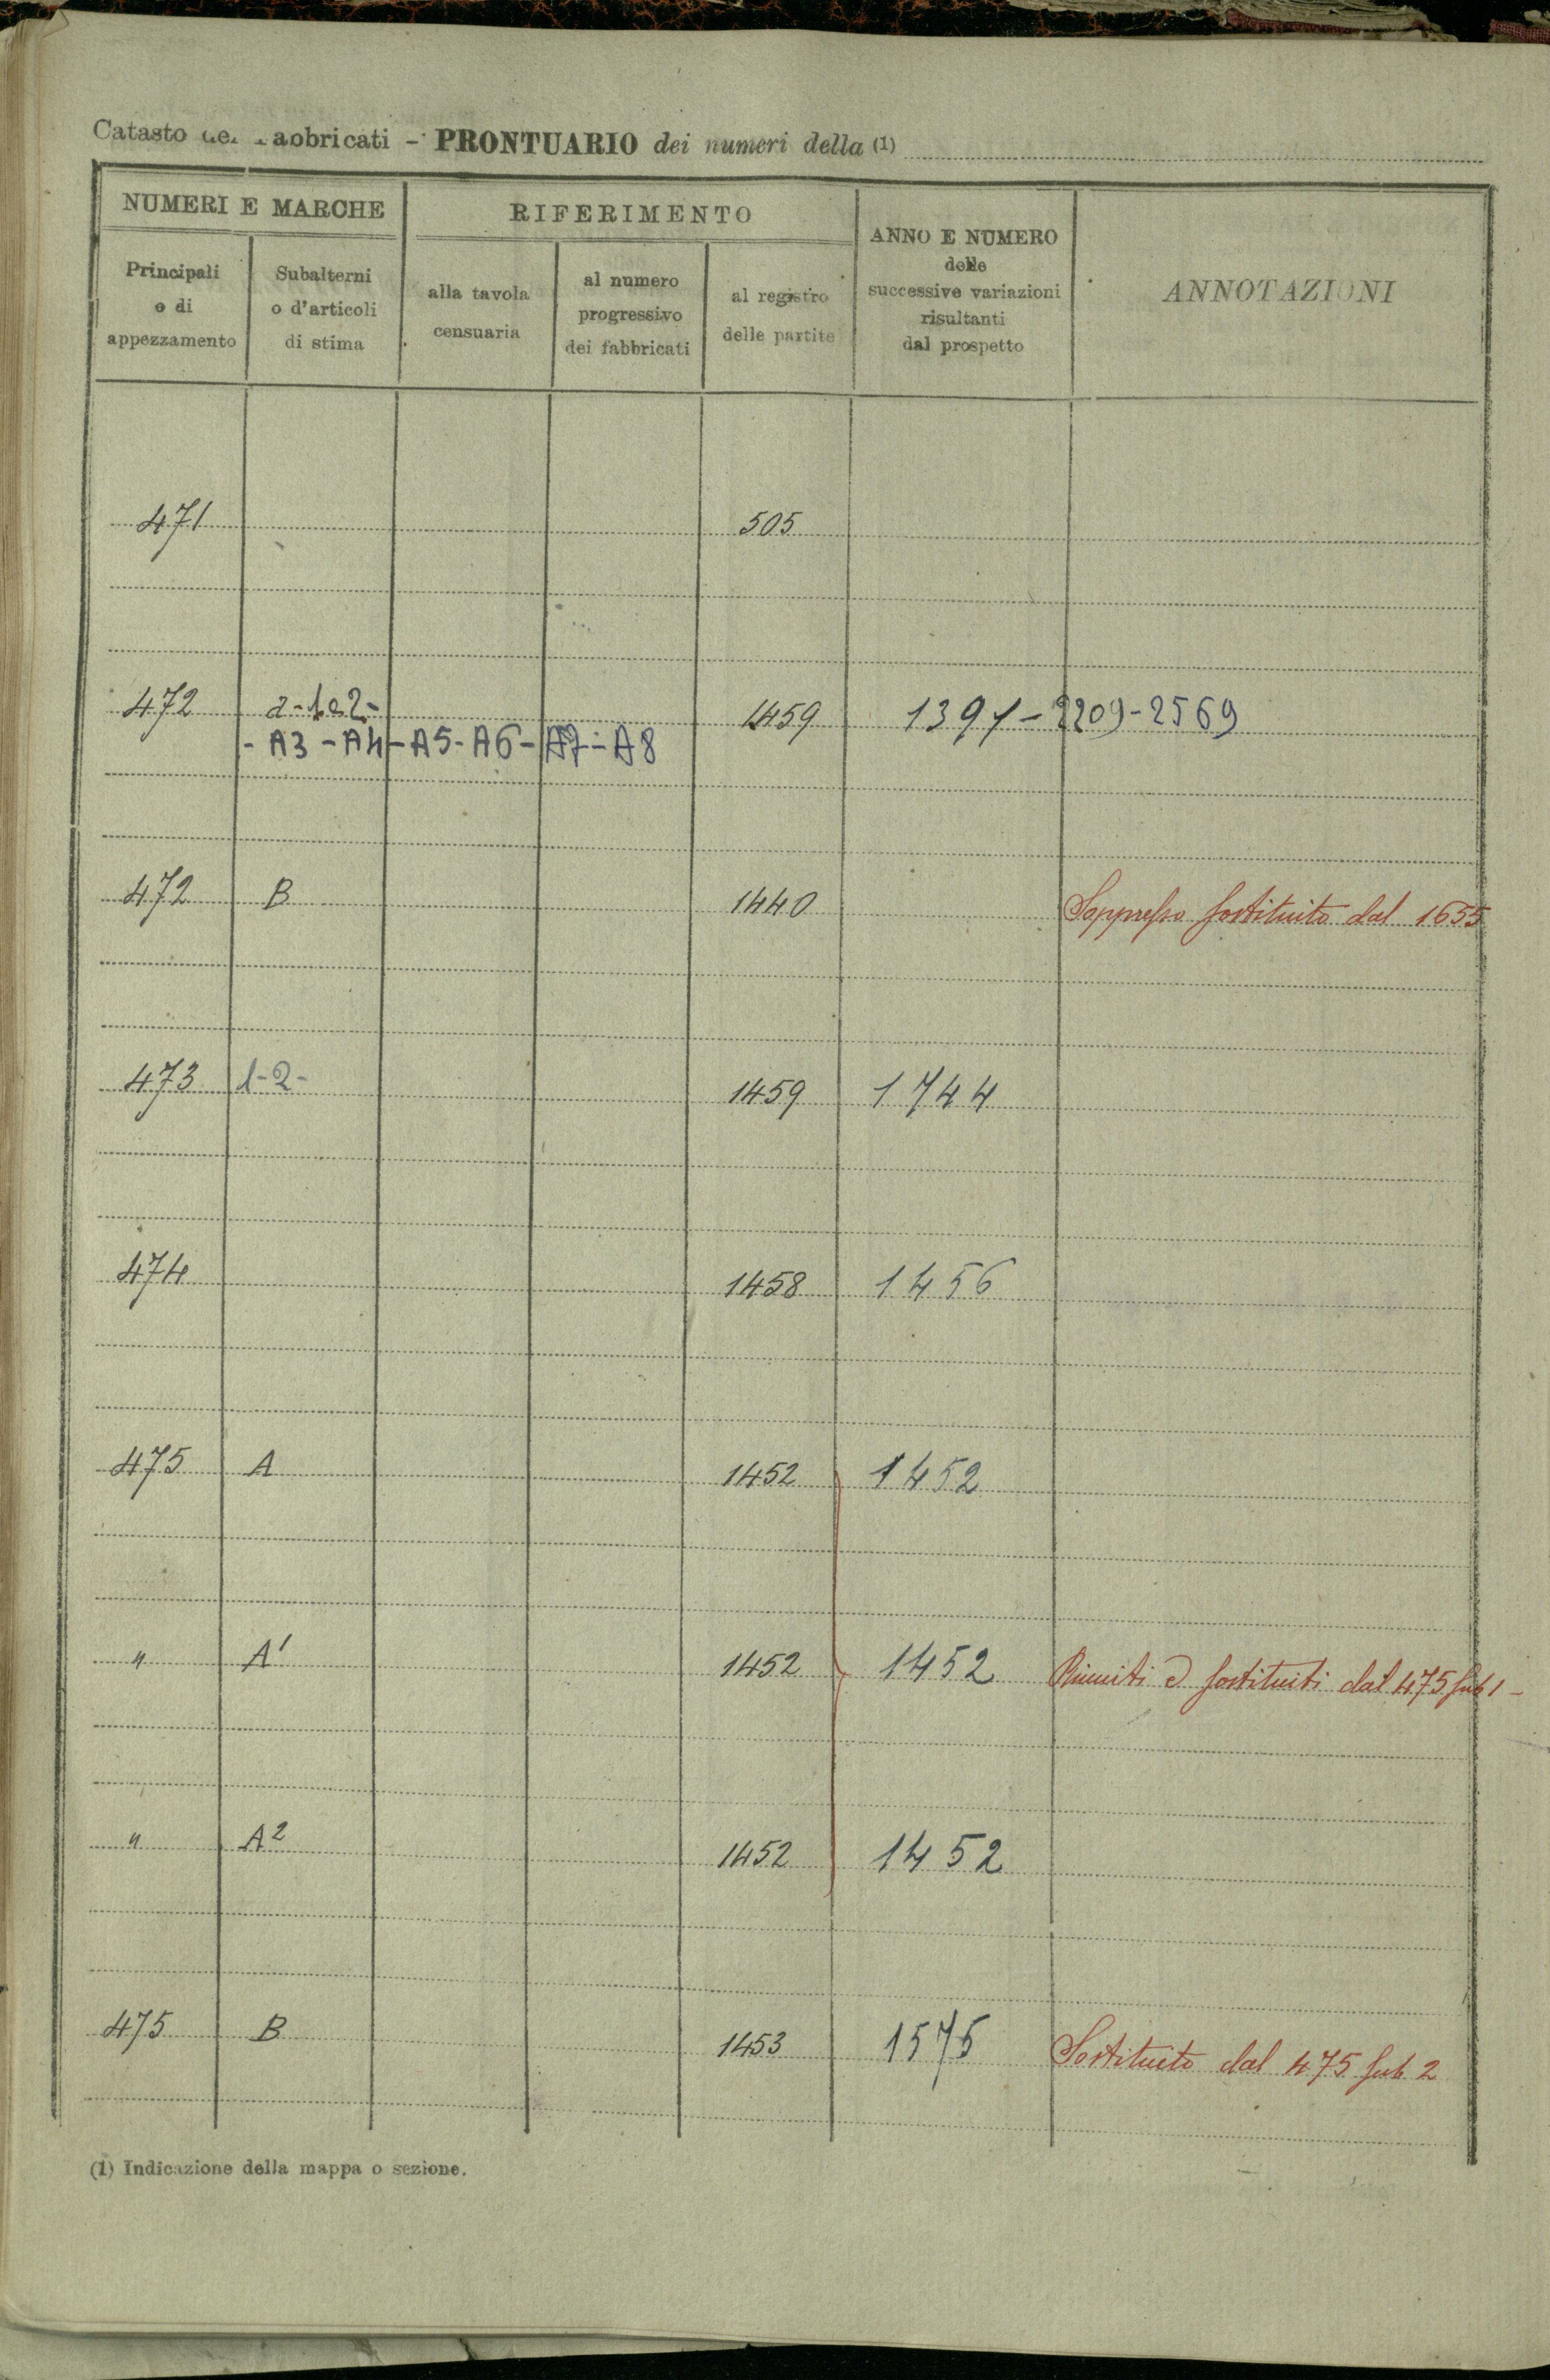 Catasto dei Fabbricati - PRONTUARIO dei numeri della (1)
NUMERI E MARCHE
RIFERIMENTO
ANNO E NUMERO
delle
successive variazioni
risultanti
dal prospetto
ANNOTAZIONI
Principali
o di
appezzamento
Subalterni
o d'articoli
di stima
alla tavola
censuaria
al numero
progressivo
dei fabbricati
al registro
delle partite
471 505
472 a-1a2- 1459 1391-2209-2569
- A3 - A4 - A5 - A6 - A7 - A8
472 B 1440 Soppresso sostituito dal 1655
473 1-2- 1459 1744
474 1458 1456
475 A 1452 1452
" A' 1452 1452 Riuniti e sostituiti dal 475 sub 1 -
" A2 1452 1452
475 B 1453 1575 Sostituito dal 475 sub 2
(1) Indicazione della mappa o sezione.